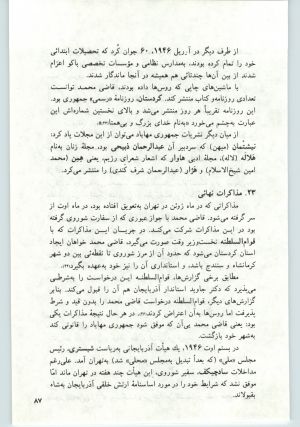 از طرف دیگر در آرریل ۱۹۴۶، ۶۰ جوان کُرد که تحصیلات ابتدائی
خود را تمام کرده بودند، به‌مدارس نظامی و مؤسسات تخصصی باکو اعزام
شدند از بین آن‌ها چندتائی هم همیشه در آنجا ماندگار شدند.
با ماشین‌های چاپی که روس‌ها داده بودند، قاضی محمد توانست
تعدادی روزنامه‌و کتاب منتشر کند. کردستان، روزنامهٔ «رسمی» جمهوری بود.
این روزنامه تقریباً هر روز منتشر می‌شد و بالای نخستین شماره‌اش این
عبارت به‌چشم می‌خورد «به‌نام خدای بزرگ و بی‌همتا»
از میان دیگر نشریات جمهوری مهاباد می‌توان از این مجلات یاد کرد:
نیشتمان (میهن) که سردبیر آن عبدالرحمان ذبیحی بود، مجلهٔ زنان به‌نام
هه‌لاله (لاله)، مجلهٔ ادبی هاوار که اشعار شعرای رژیم، یعنی هِمِن (محمد
امین شیخ‌الاسلام) و هَژار (عبدالرحمان شرف کندی) را منتشر می‌کرد.
۲۳. مذاکرات نهائی
مذاکراتی که در ماه ژوئن در تهران به‌تعویق افتاده بود، در ماه اوت از
سر گرفته می‌شود. قاضی محمد با جواز عبوری که از سفارت شوروی گرفته
بود در این مذاکرات شرکت می‌کند. در جریان این مذاکرات که با
قوام‌السلطنه نخست‌وزیر وقت صورت می‌گیرد، قاضی محمد خواهان ایجاد
استان کردستان می‌شود که حدود آن از مرز شوروی تا نقطه‌ئی بین دو شهر
کرمانشاه و سنندج باشد، و استانداری آن را نیز خود به‌عهده بگیرد
مطابق برخی گزارش‌ها، قوام‌السلطنه این درخواست را به‌شرطی
می‌پذیرد که دکتر جاوید استاندار آذربایجان هم آن را قبول کند. بنابر
گزارش‌های دیگر، قوام‌السلطنه درخواست قاضی محمد را بدون قید و شرط
پذیرفت اما روس‌ها به‌آن اعتراض کردند در هر حال نتیجهٔ مذاکرات یکی
بود: یعنی قاضی محمد بی آن که موفق شود جمهوری مهاباد را قانونی کند
به‌شهر خود بازگشت.
در بسم اوت ۱۹۴۶، یك هیأت آذربایجانی به‌ریاست شبستری، رئیس
مجلس «ملی» (که بعداً تبدیل به‌مجلس «محلی» شد) به‌تهران آمد. علی‌رغم
مداخلات سادچیکف، سفیر شوروی، این هیأت چند هفته در تهران ماند اما
موفق نشد که شرایط خود را در مورد اساسنامهٔ ارتش خلقی آذربایجان به‌شاه
بقبولاند.
۸۷